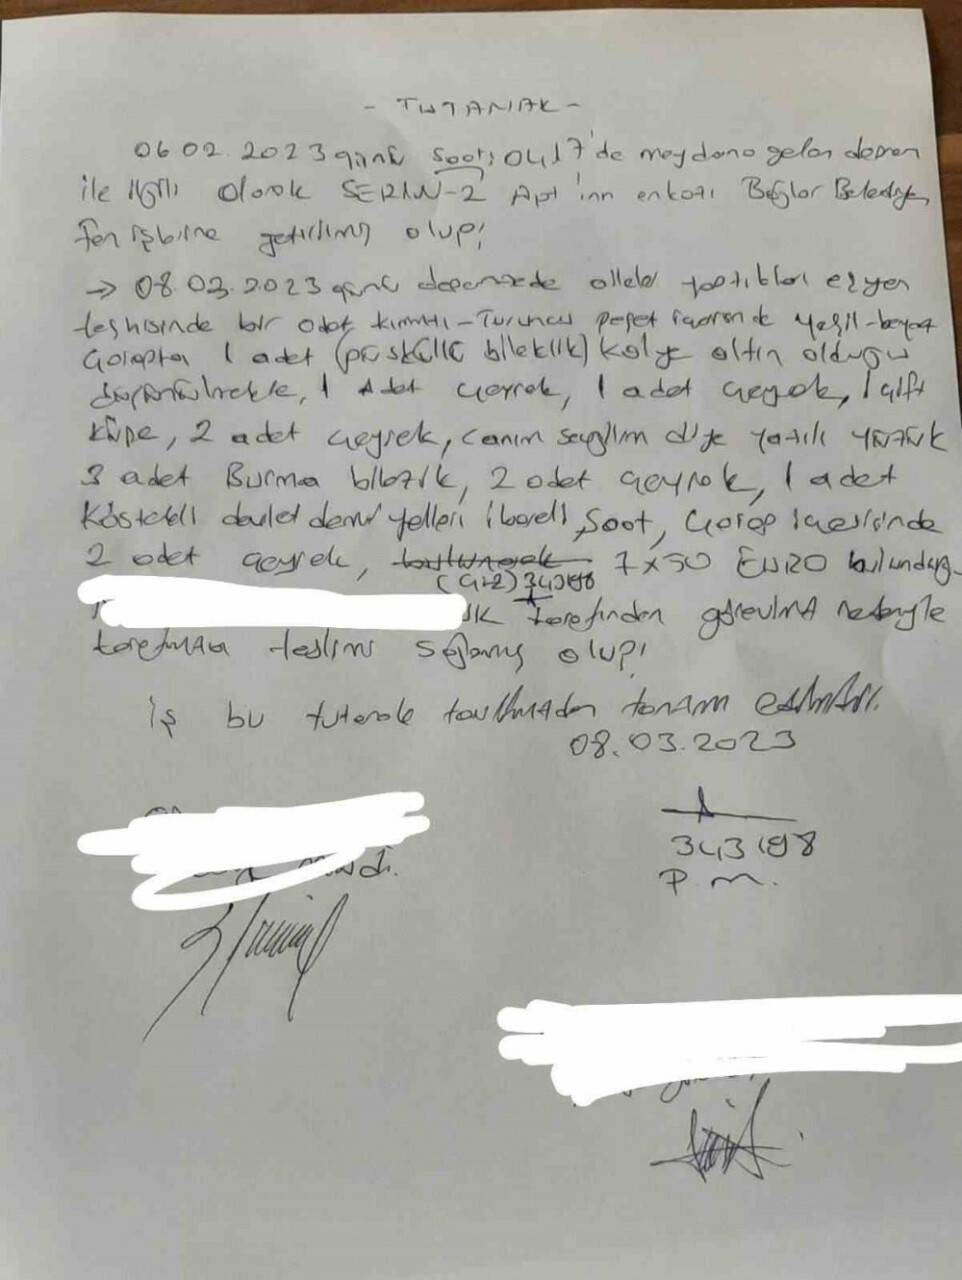 - TUTANAK -
06.02.2023 günü saat: 04.17'de meydana gelen deprem
ile ilgili olarak SERİN-2 Apt'ının enkazı Bağlar Belediye
fen işlerine getirilmiş olup;
→ 08.03.2023 günü depremzede aileler yaptıkları eşya
teşhisinde bir adet kırmızı-Turuncu poşet içerisinde yeşil-beyaz
Çorapta 1 adet (püsküllü bileklik) kolye altın olduğu
düşünülmekte, 1 Adet çeyrek, 1 adet çeyrek, 1 çift
küpe, 2 adet çeyrek, canım sevgilim diye yazılı yüzük
3 adet Burma bilezik, 2 adet çeyrek, 1 adet
Köstekli devlet demir yolları ibareli Saat, Çorap içerisinde
2 adet çeyrek, 7x50 EURO bulunduğu
343198
tarafından görevlim nedeniyle
tarafıma teslimi sağlanmış olup;
İş bu tutanak tarafımızdan tanzim edilmiştir.
08.03.2023
343198
P.M.